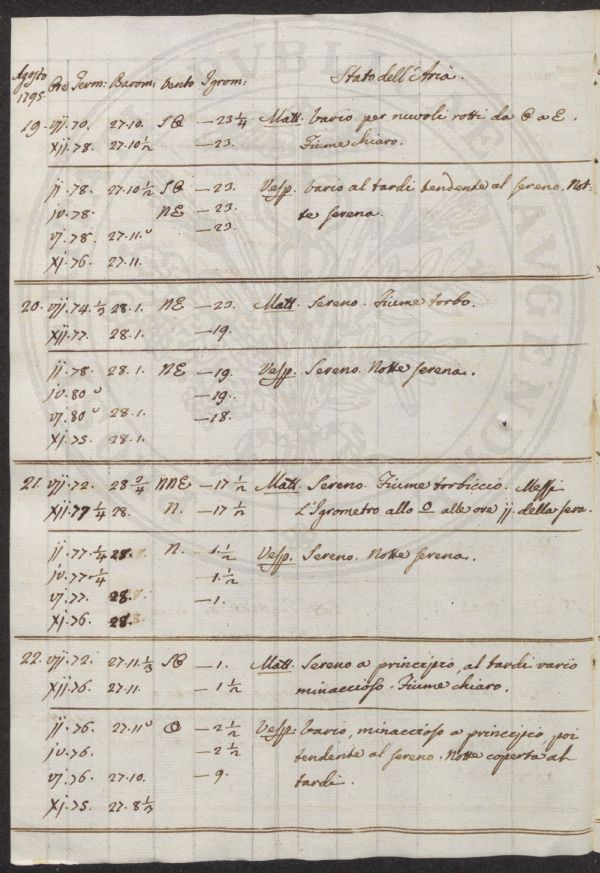 Agosto 1795. Ore Term: Barom: Vento Igrom: Stato dell'Aria.
19. vij. 70. 27.10. SO — 23 1/4 Matt. Vario per nuvoli rotti da O a E.
xij. 78. 27.10 1/2 — 23. Fiume chiaro.
ij. 78. 27.10 1/2 SO — 23. Vesp. Vario al tardi tendente al sereno. Not-
iv. 78. NE — 23. te serena.
vj. 78. 27.11.0 — 23.
xj. 76. 27.11.
20. vij. 74. 1/3 28.1. NE — 23. Matt. Sereno. Fiume torbo.
xij. 77. 28.1. — 19.
ij. 78. 28.1. NE — 19. Vesp. Sereno. Notte serena.
iv. 80 0 — 19.
vj. 80 0 28.1. — 18.
xj. 75. 28.1.
21. vij. 72. 28 NNE — 17 1/2 Matt. Sereno. Fiume torbiccio. Messi
xij. 77 1/4 28. N. — 17 1/2 l'Igrometro allo 0 alle ore ij. della sera.
ij. 77. 1/4 28. N. — 1. 1/2 Vesp. Sereno. Notte serena.
iv. 77 1/4 — 1. 1/2
vj. 77. 28. — 1.
xj. 76. 28.
22. vij. 72. 27.11. 1/3 SO — 1. Matt. Sereno a principio, al tardi vario
xij. 76. 27.11. — 1 1/2 minaccioso. Fiume chiaro.
ij. 76. 27.11 0 O — 2 1/2 Vesp: Vario, minaccioso a principio, poi
iv. 76. — 2 1/2 tendente al sereno. Notte coperta al
vj. 76. 27.10. — 9. tardi.
xj. 75. 27.8 1/3